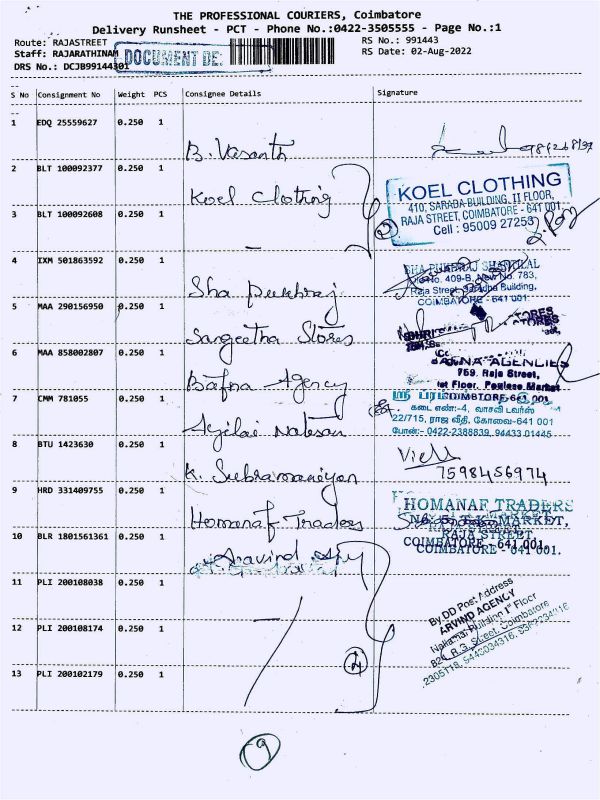 THE PROFESSIONAL COURIERS, Coimbatore
Delivery Runsheet - PCT - Phone No.:0422-3505555 - Page No.:1
Route: RAJASTREET
RS No.: 991443
Staff: RAJARATHINAM
RS Date: 02-Aug-2022
DRS No.: DCJB99144301
DOCUMENT DE:
S No Consignment No Weight PCS Consignee Details Signature
1 EDQ 25559627 0.250 1 B. Vasanth
2 BLT 100092377 0.250 1 Koel Clothing
KOEL CLOTHING
410, SARADA BUILDING, II FLOOR,
RAJA STREET, COIMBATORE - 641 001
Cell : 95009 27253
3 BLT 100092608 0.250 1 -
2
4 IXM 501863592 0.250 1 Sha Pukhraj
SHA PUKHRAJ
No. 409-B, New No. 783,
Raja Street, Building,
COIMBATORE - 641 001.
5 MAA 290156950 0.250 1 Sangeetha Stores
STORES
6 MAA 858002807 0.250 1 Bafna Agency
BAFNA AGENCIES
759, Raja Street,
Ist Floor, Market
COIMBATORE-641 001
7 CMM 781055 0.250 1
ஸ்ரீ
கடை எண்:-4, வாசவி டவர்ஸ்
22/715, ராஜ வீதி, கோவை-641 001
போன்:- 0422-2388839, 94433 01445
8 BTU 1423630 0.250 1 K. Subramaniyan
7598456974
9 HRD 331409755 0.250 1 Homanaf Traders
HOMANAF TRADERS
MARKET,
RAJA STREET
COIMBATORE - 641 001.
10 BLR 1801561361 0.250 1 Aravind Agy
11 PLI 200108038 0.250 1
By DD Post Address
ARVIND AGENCY
Building 1st Floor
R.G. Street, Coimbatore
12 PLI 200108174 0.250 1
4
13 PLI 200102179 0.250 1
9